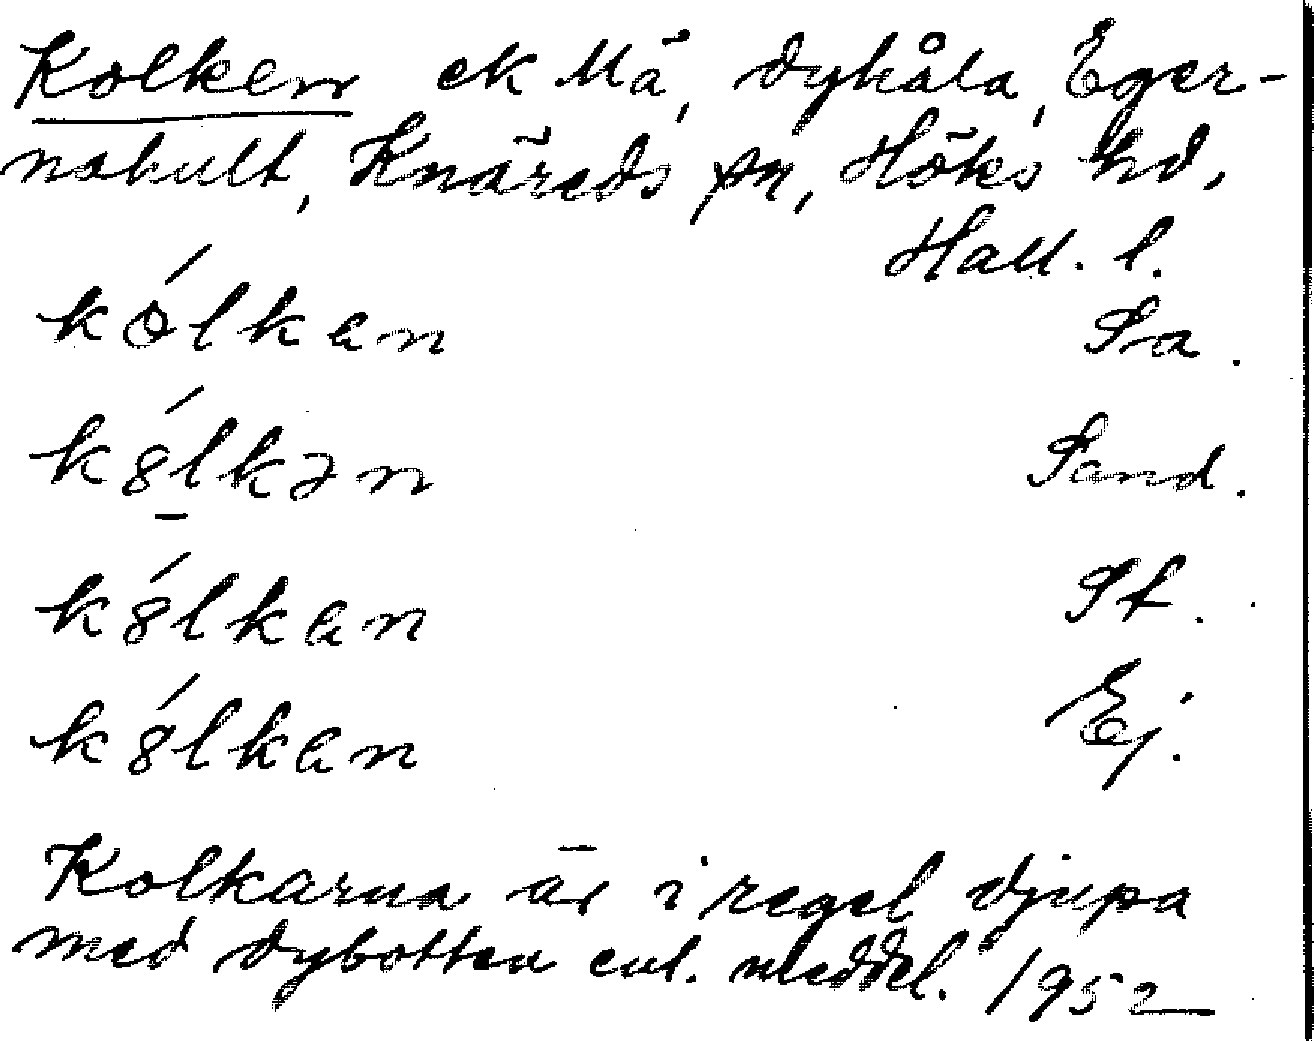 Kolken ek Mä, dyhåla, Eger-
nahult, Knäreds sn, Höks hd,
Hall. l.
kólkan Sa.
kó̤lkən Sand.
kólkan St.
kólkan Ej.
Kolkarna är i regel djupa
med dybotten enl. meddel. 1952